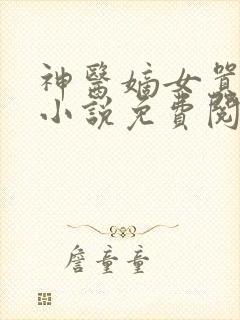 神醫嫡女買
小說免費閱
詹童童